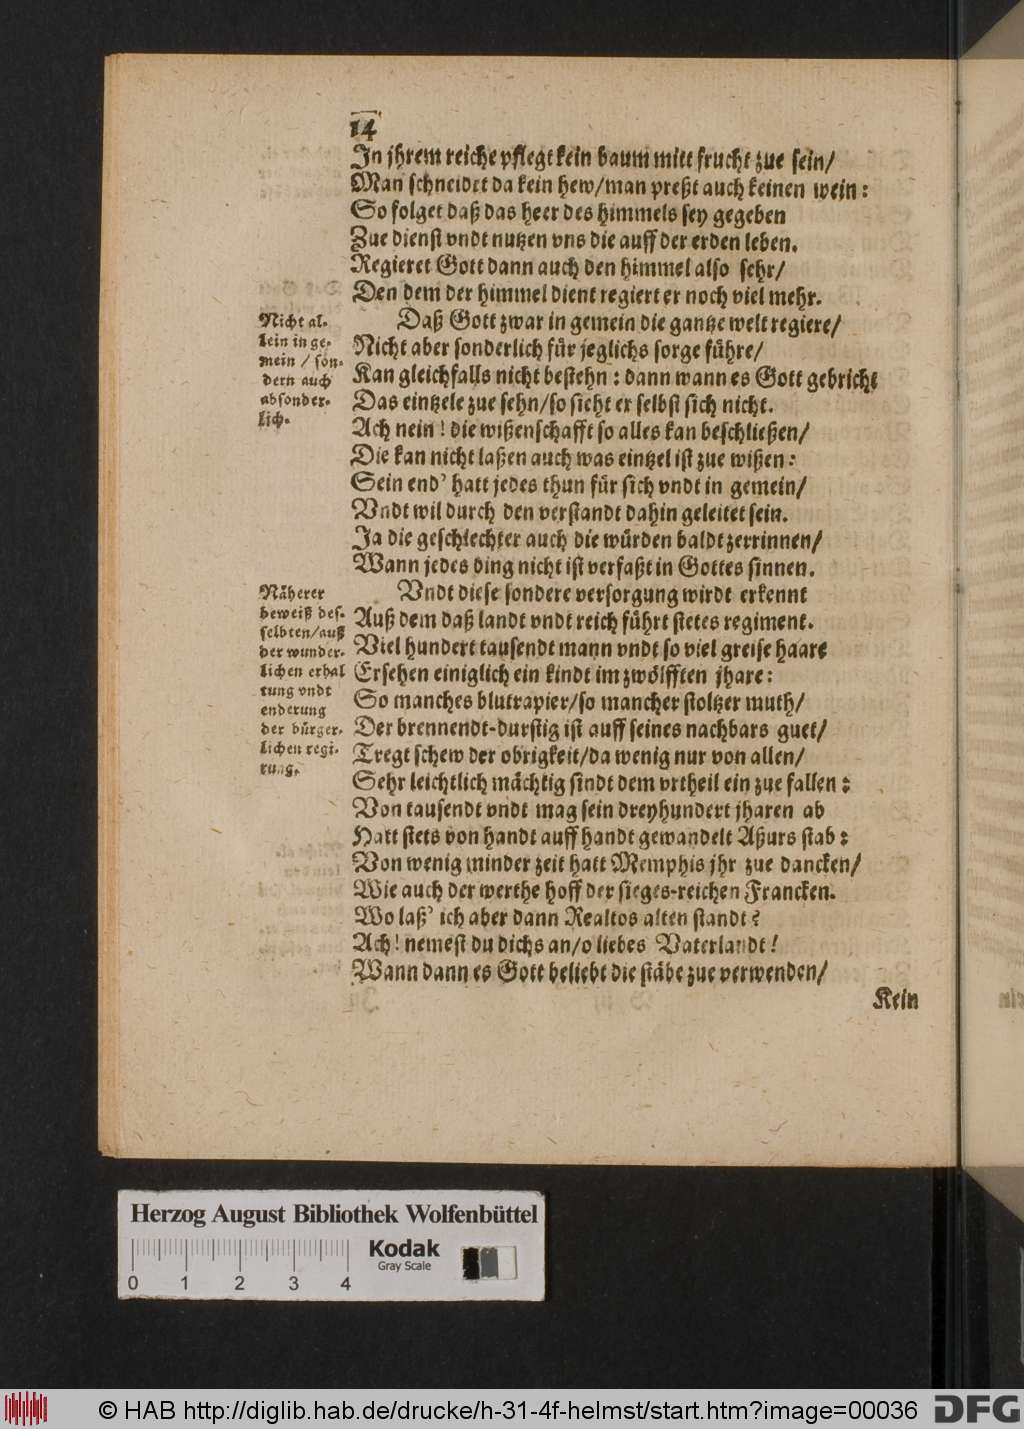 14
In jhrem reiche pflegt kein baum mitt frucht zue sein/
Man schneidet da kein hew/man preßt auch keinen wein:
So folget daß das heer des himmels sey gegeben
Zue dienst vndt nutzen vns die auff der erden leben.
Regieret Gott dann auch den himmel also sehr/
Den dem der himmel dient regiert er noch viel mehr.
Nicht al-
lein in ge-
mein / son-
dern auch
absonder-
lich.
Daß Gott zwar in gemein die gantze welt regiere/
Nicht aber sonderlich für jeglichs sorge führe/
Kan gleichfalls nicht bestehn: dann wann es Gott gebricht
Das eintzele zue sehn/so sieht er selbst sich nicht.
Ach nein! die wißenschafft so alles kan beschließen/
Die kan nicht laßen auch was eintzel ist zue wißen:
Sein end' hatt jedes thun für sich vndt in gemein/
Vndt wil durch den verstandt dahin geleitet sein.
Ja die geschlechter auch die würden baldt zerrinnen/
Wann jedes ding nicht ist verfaßt in Gottes sinnen.
Näherer
beweiß des-
selbten/auß
der wunder-
lichen erhal
tung vndt
enderung
der bürger-
lichen regi-
rung.
Vndt diese sondere versorgung wirdt erkennt
Auß dem daß landt vndt reich führt stetes regiment.
Viel hundert tausendt mann vndt so viel greise haare
Ersehen einiglich ein kindt im zwölfften jhare:
So manches blutrapier/so mancher stoltzer muth/
Der brennendt-durstig ist auff seines nachbars guet/
Tregt schew der obrigkeit/da wenig nur von allen/
Sehr leichtlich mächtig sindt dem vrtheil ein zue fallen:
Von tausendt vndt mag sein dreyhundert jharen ab
Hatt stets von handt auff handt gewandelt Aßurs stab:
Von wenig minder zeit hatt Memphis jhr zue dancken/
Wie auch der werthe hoff der sieges-reichen Francken.
Wo laß' ich aber dann Realtos alten standt?
Ach! nemest du dichs an/o liebes Vaterlandt!
Wann dann es Gott beliebt die stäbe zue verwenden/
Kein
Herzog August Bibliothek Wolfenbüttel
Kodak
Gray Scale
0 1 2 3 4
© HAB http://diglib.hab.de/drucke/h-31-4f-helmst/start.htm?image=00036
DFG